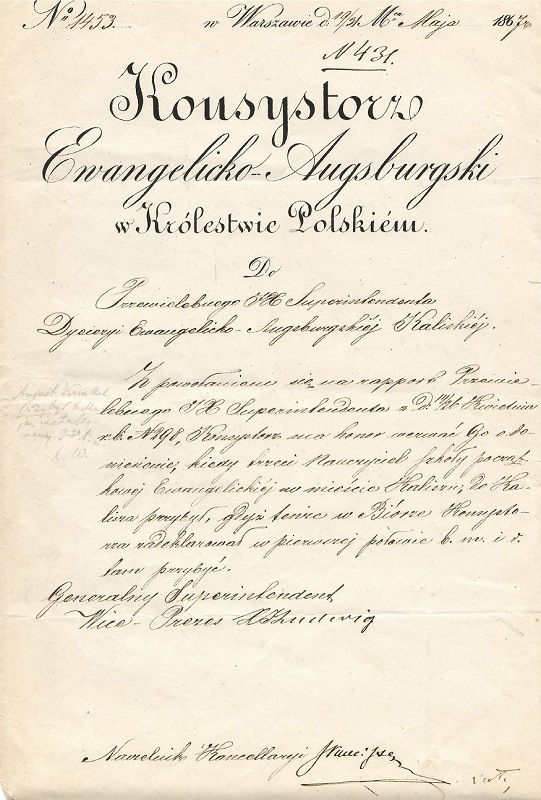 No 1453.
w Warszawie d. 19/31 Mca Maja 1867 r.
N 431.
Konsystorz
Ewangelicko-Augsburgski
w Królestwie Polskiém.
Do
Przewielebnego JX Superintendenta
Dyecezyi Ewangelicko-Augsburgskiéj Kaliskiéj.
Z powołaniem się na rapport Przewie-
lebnego JX Superintendenta z d. Kwietnia
r.b. N 398, Konsystorz ma honor wezwać Go o do-
niesienie, kiedy trzeci Nauczyciel Szkoły począt-
kowéj Ewangelickiéj w mieście Kaliszu, do Ka-
lisza przybył, gdyż tenże w Biórze Konsysto-
rza zadeklarował w pierwszej połowie b. m. i r.
tam przybyć.
August Kunkel
Generalny Superintendent
Vice-Prezes Ludwig
Naczelnik Kancellaryi